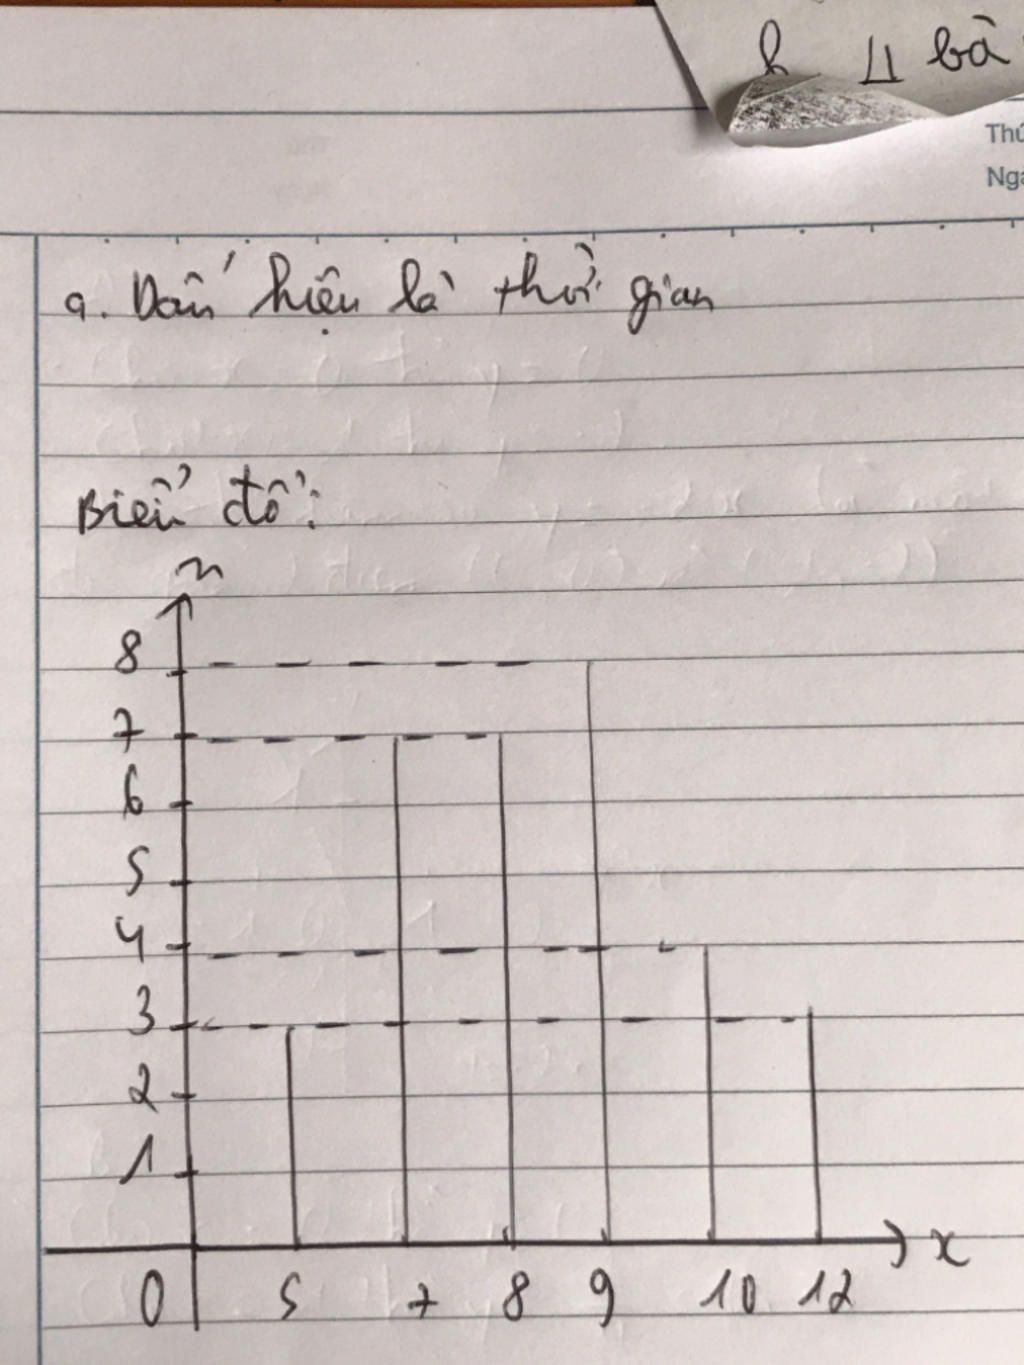 4 bà
Thứ
Ngà
a. Dấu hiệu là thời gian
Biểu đồ:
n
8
7
6
5
4
3
2
1
0 5 7 8 9 10 12 x